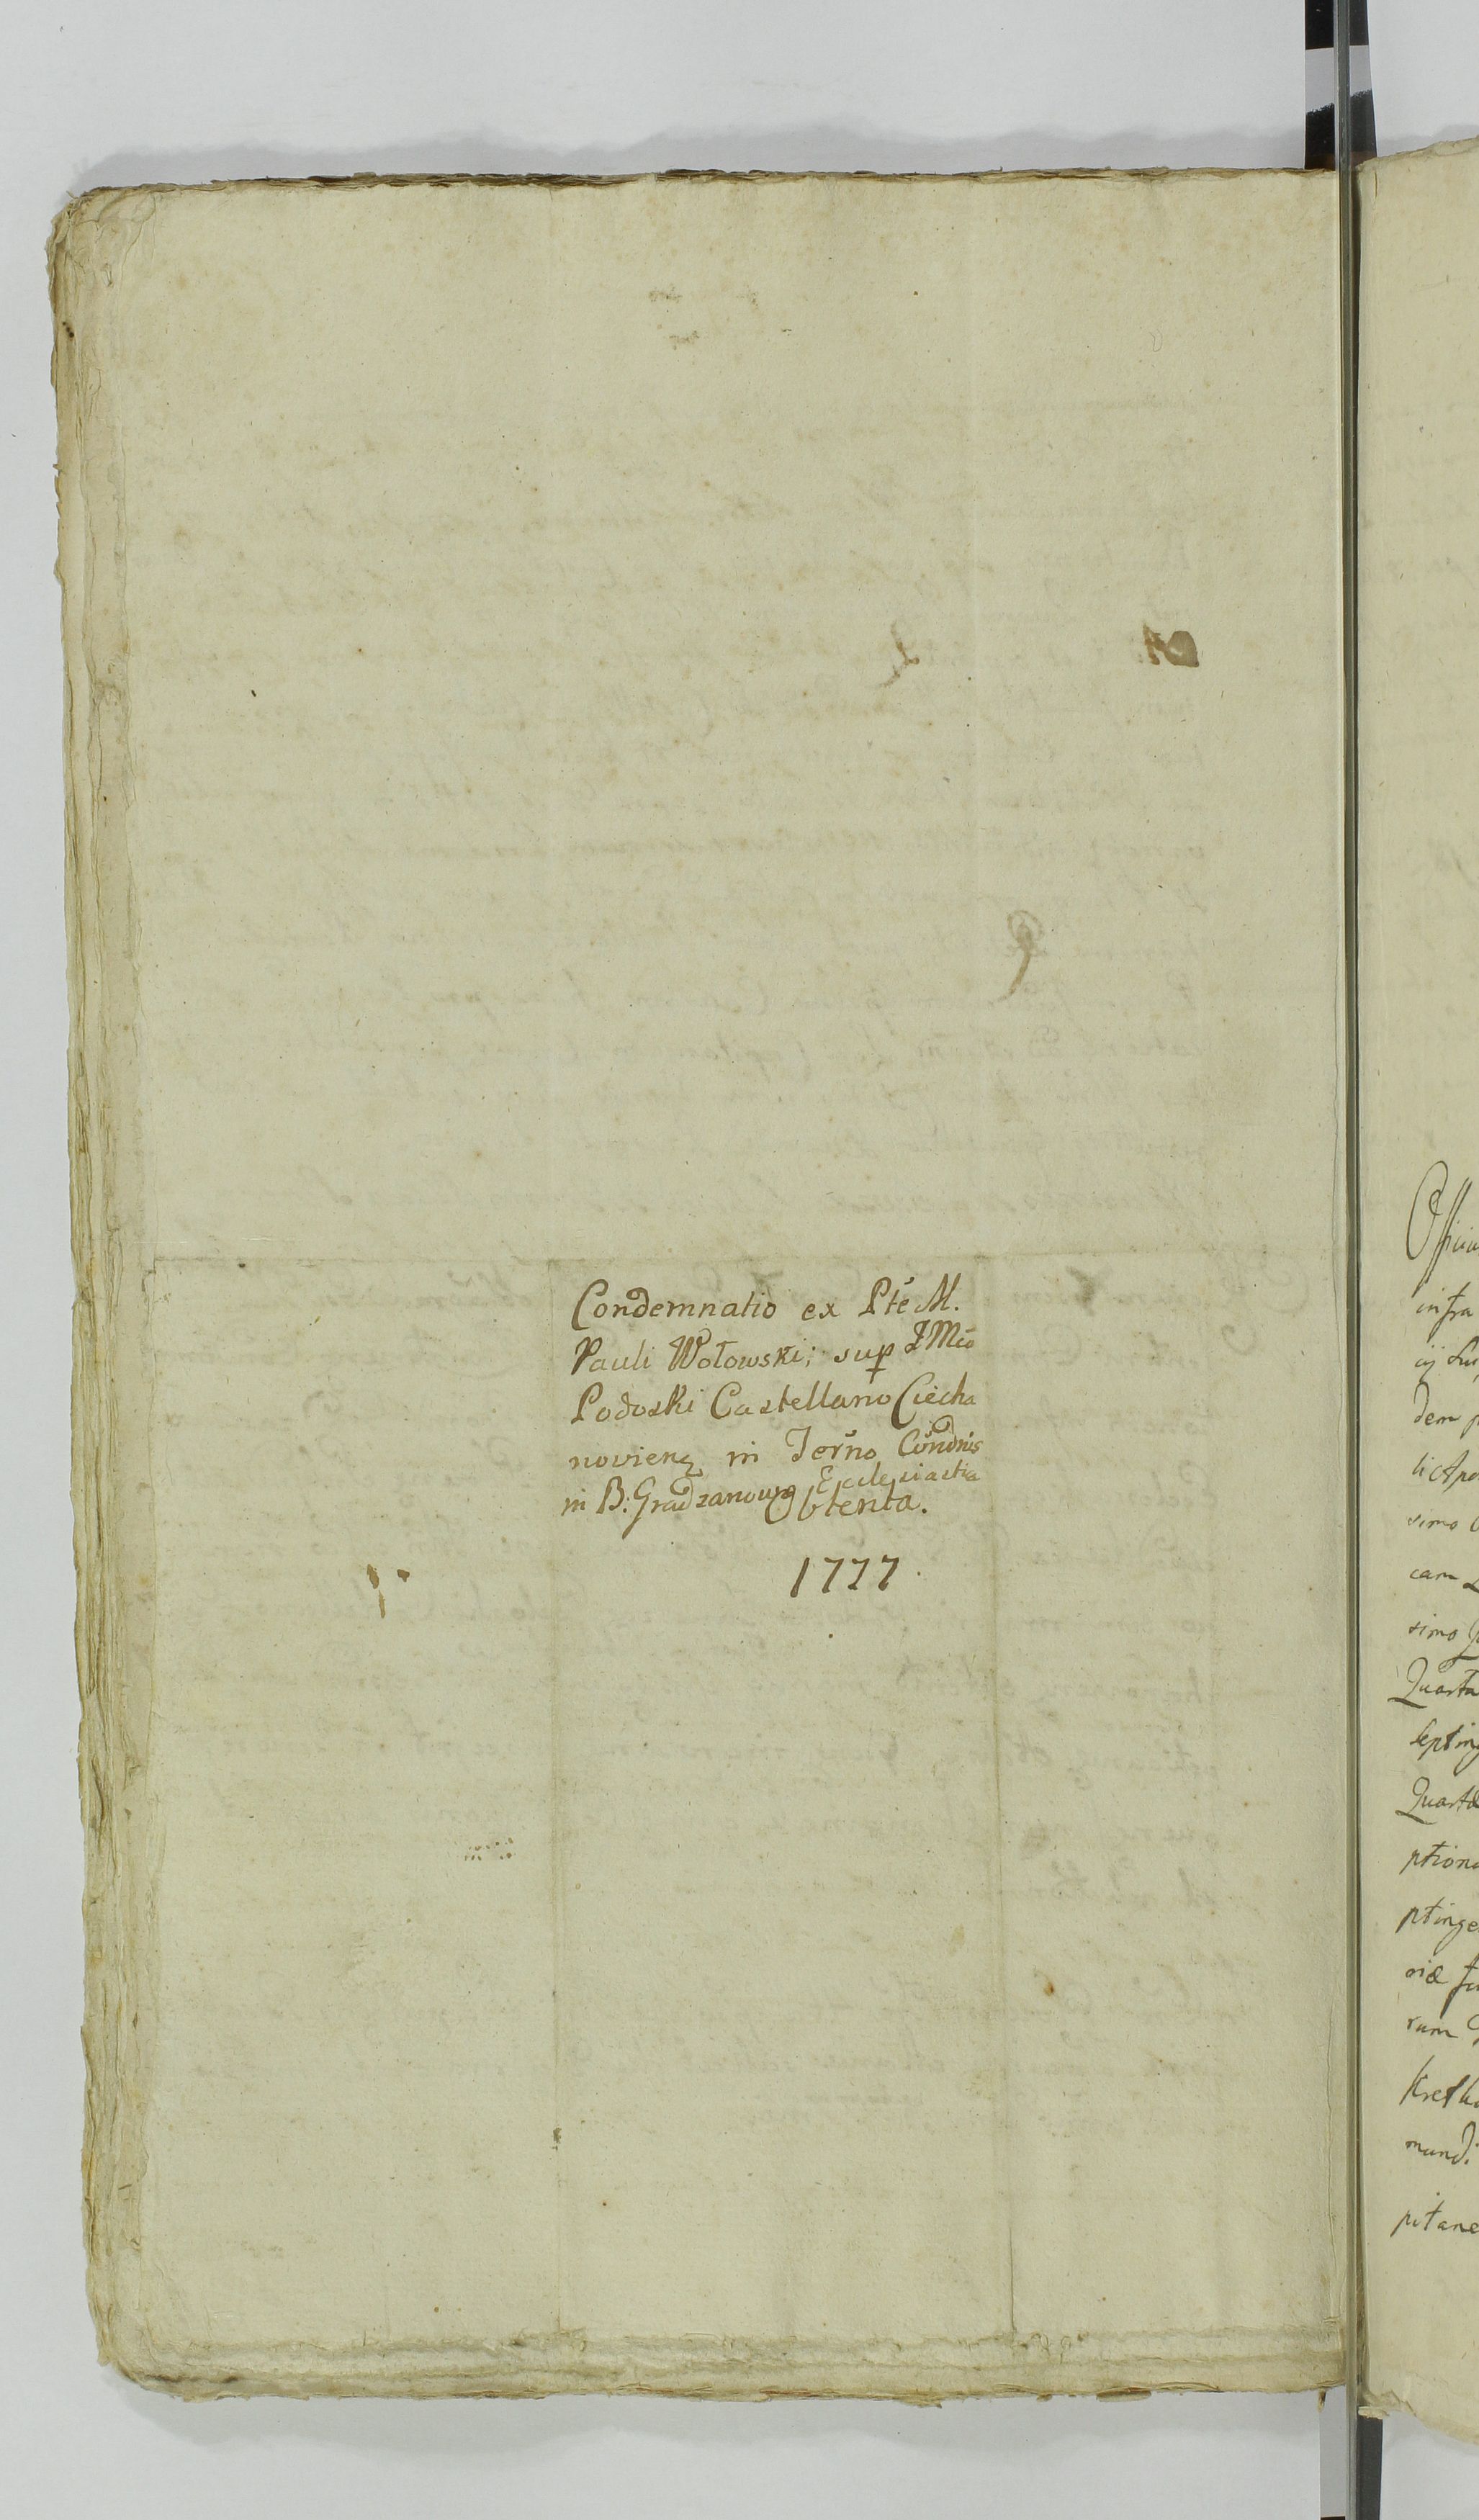 Condemnatio ex Pte M.
Pauli Wołowski; sup JMco
Podoski Castellano Ciecha
novienz in Terno Cundnis
in B. Gradzanowo Ecclesiastia
Obtenta.
1777.
Officiu
infra
dem p
simo
cam
simo
Quarta
septing
Quarta
ptiona
ptinge
riæ
rum
mund.
pitane